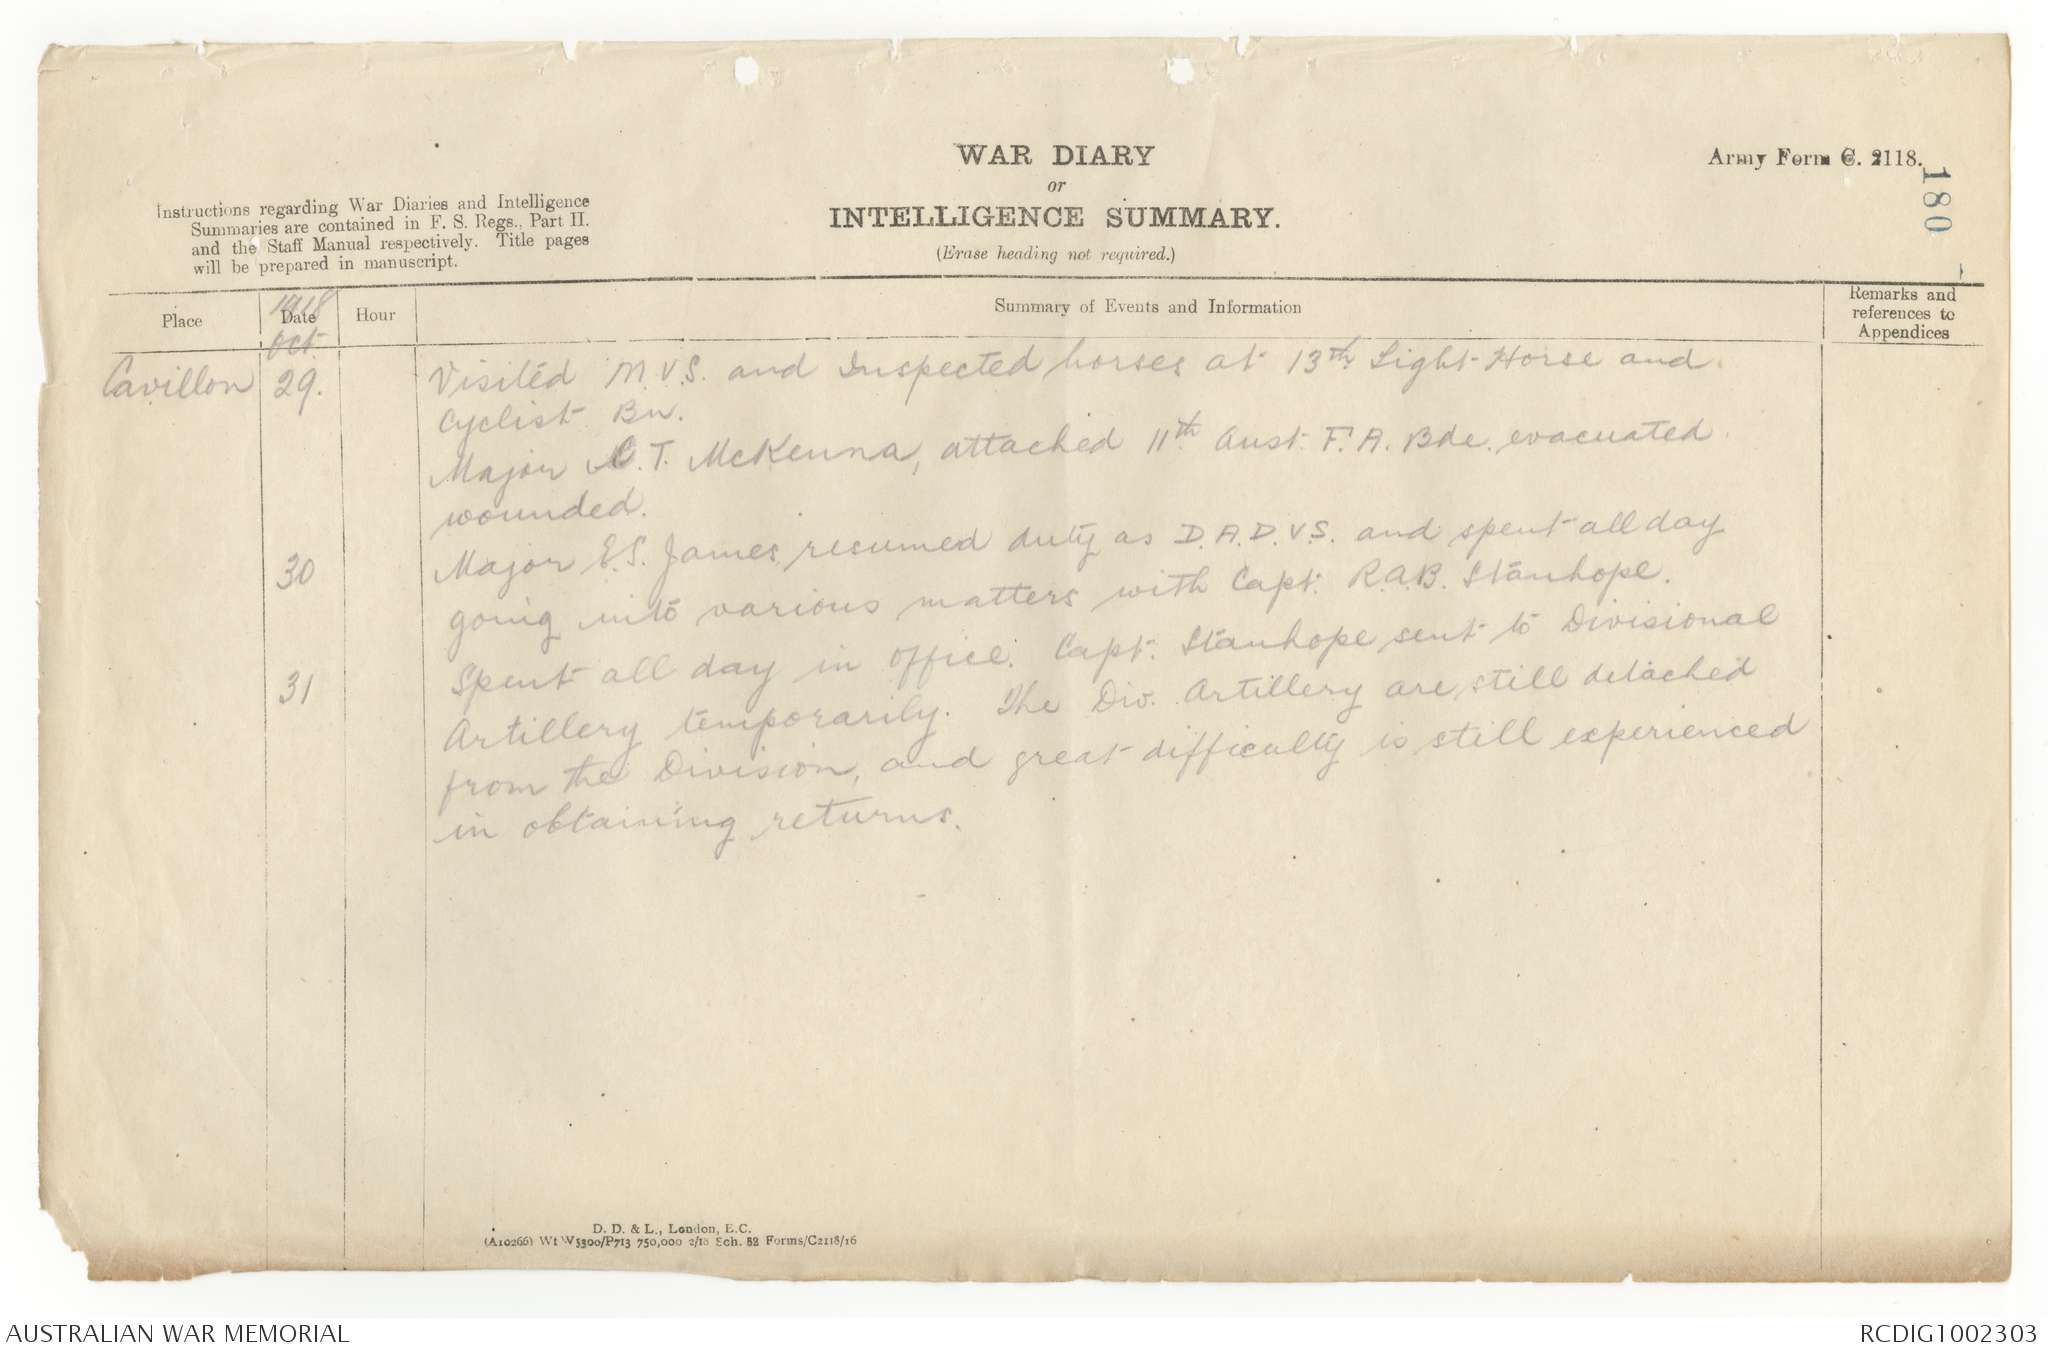 WAR DIARY
or
INTELLIGENCE SUMMARY.
(Erase heading not required.)
Army Form C. 2118.
180
Instructions regarding War Diaries and Intelligence
Summaries are contained in F. S. Regs., Part II.
and the Staff Manual respectively. Title pages
will be prepared in manuscript.
Place
1918
Date
Oct.
Hour
Summary of Events and Information
Remarks and
references to
Appendices
Cavillon 29. Visited M.V.S. and Inspected horses at 13th Light Horse and
Cyclist Bn.
Major C.T. McKenna, attached 11th Aust. F.A. Bde. evacuated
wounded.
30 Major E.S. James, resumed duty as D.A.D.V.S. and spent all day
going into various matters with Capt. R.A.B. Stanhope.
31 Spent all day in office. Capt. Stanhope sent to Divisional
Artillery temporarily. The Div. Artillery are still detached
from the Division, and great difficulty is still experienced
in obtaining returns.
D. D. & L., London, E.C.
(A10266) Wt W5300/P713 750,000 2/18 Sch. 52 Forms/C2118/16
AUSTRALIAN WAR MEMORIAL
RCDIG1002303